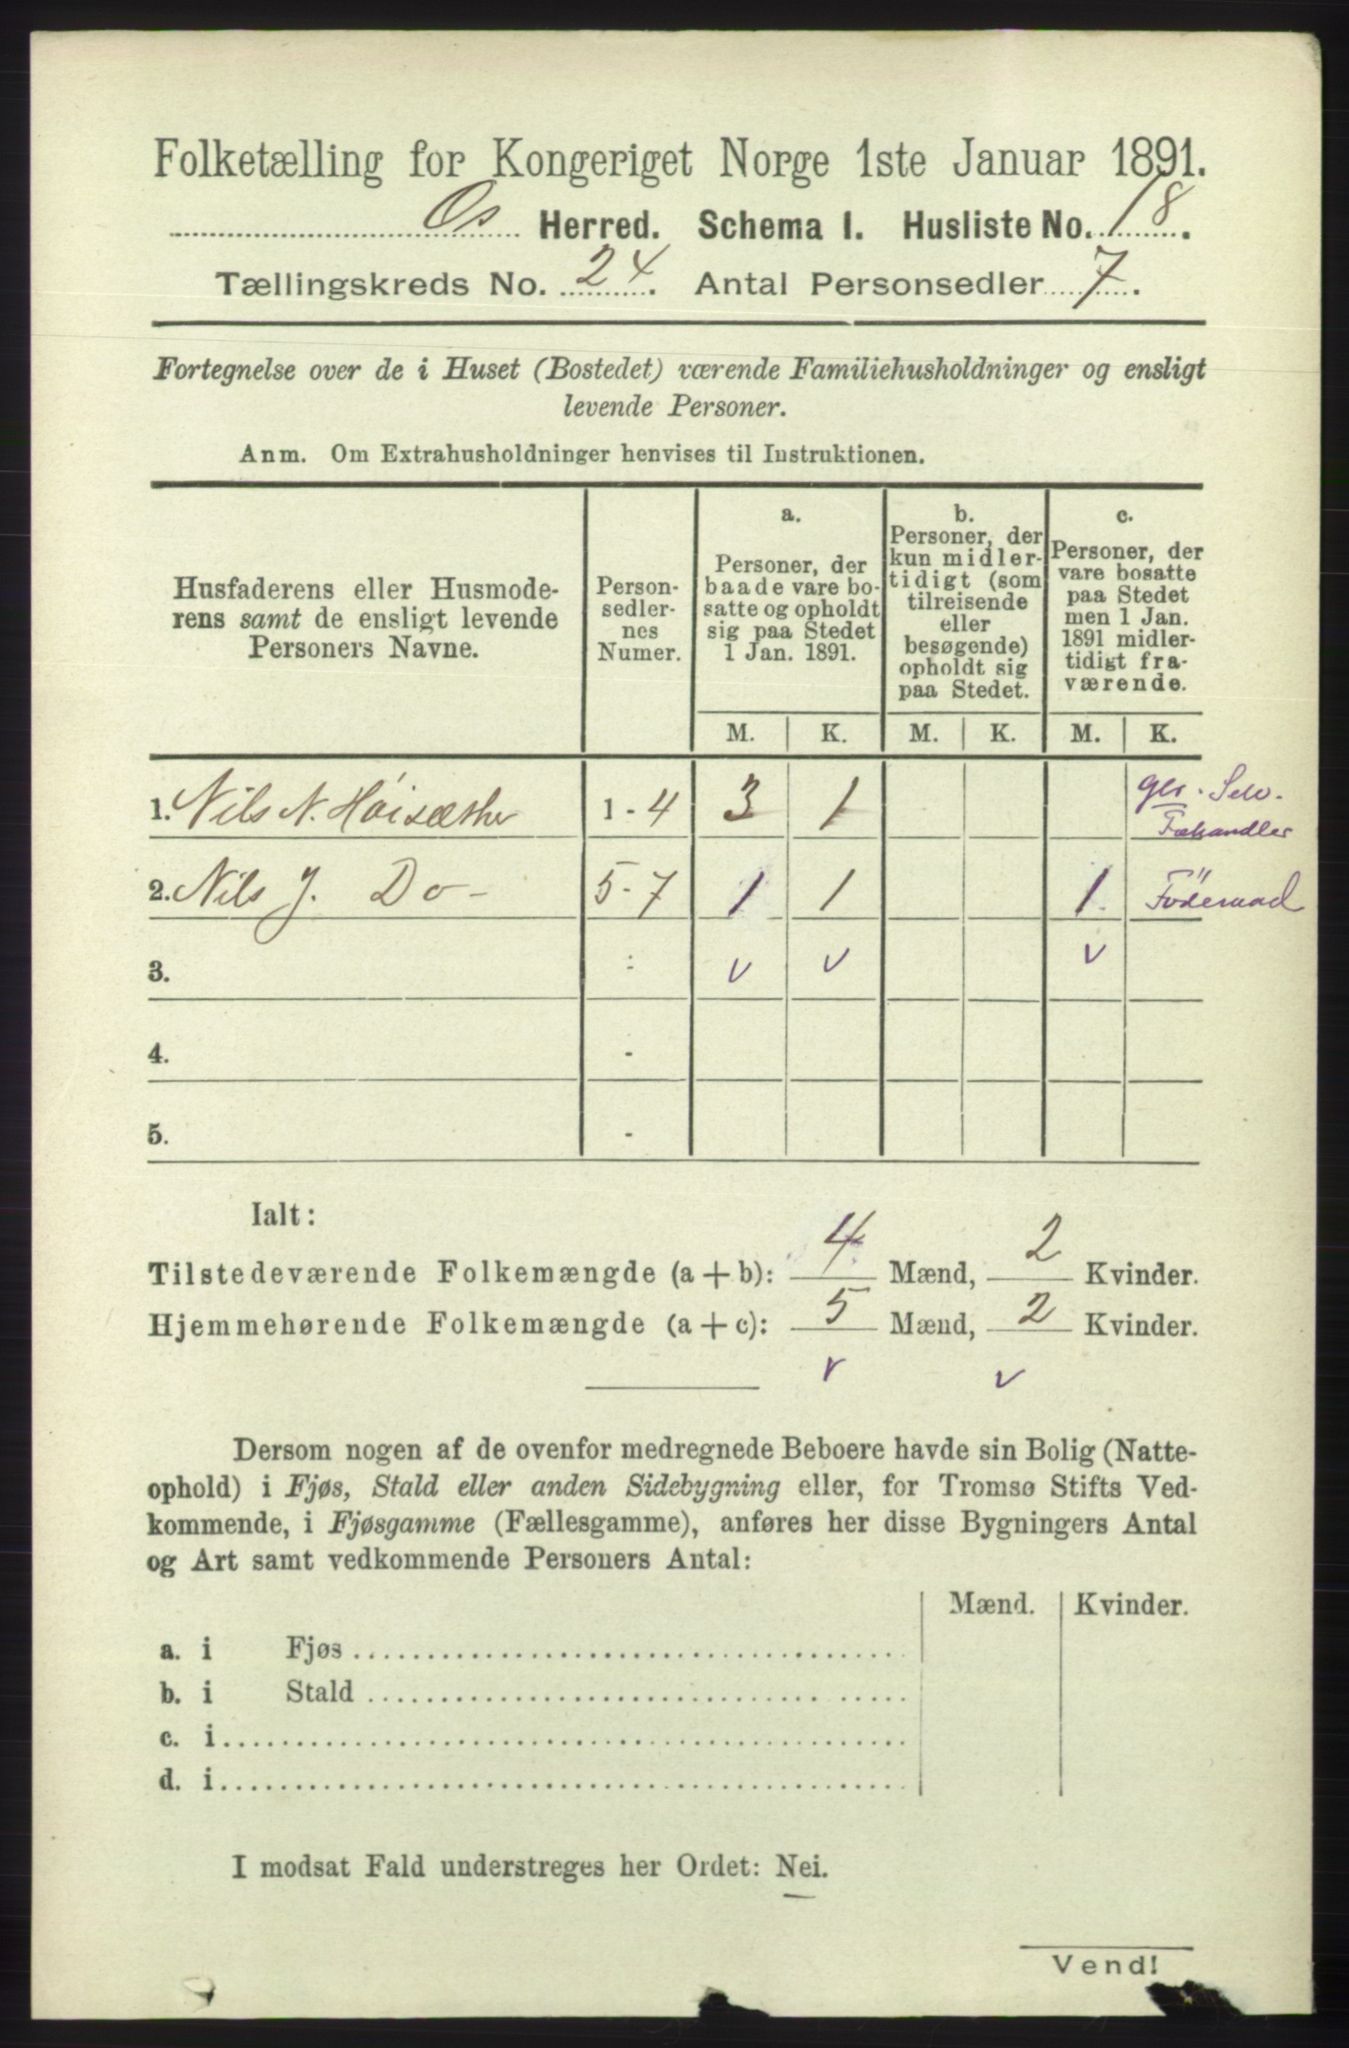 Folketælling for Kongeriget Norge 1ste Januar 1891.
Os Herred. Schema I. Husliste No. 18.
Tællingskreds No. 24. Antal Personsedler 7.
Fortegnelse over de i Huset (Bostedet) værende Familiehusholdninger og ensligt
levende Personer.
Anm. Om Extrahusholdninger henvises til Instruktionen.
Husfaderens eller Husmode-
rens samt de ensligt levende
Personers Navne.
Person-
sedler-
nes
Numer.
a.
Personer, der
baade vare bo-
satte og opholdt
sig paa Stedet
1 Jan. 1891.
b.
Personer, der
kun midler-
tidigt (som
tilreisende
eller
besøgende)
opholdt sig
paa Stedet.
c.
Personer, der
vare bosatte
paa Stedet
men 1 Jan.
1891 midler-
tidigt fra-
værende.
M. K. M. K. M. K.
1. Nils N. Høisæther 1-4 3 1 Selv.
Fæhandler
2. Nils J. Do- 5-7 1 1 1 Föderaad
3. - v v v
4. -
5. -
Ialt:
Tilstedeværende Folkemængde (a + b): 4 Mænd, 2 Kvinder.
Hjemmehørende Folkemængde (a + c): 5 Mænd, 2 Kvinder.
v v
Dersom nogen af de ovenfor medregnede Beboere havde sin Bolig (Natte-
ophold) i Fjøs, Stald eller anden Sidebygning eller, for Tromsø Stifts Ved-
kommende, i Fjøsgamme (Fællesgamme), anføres her disse Bygningers Antal
og Art samt vedkommende Personers Antal:
Mænd. Kvinder.
a. i Fjøs
b. i Stald
c. i
d. i
I modsat Fald understreges her Ordet: Nei.
Vend!